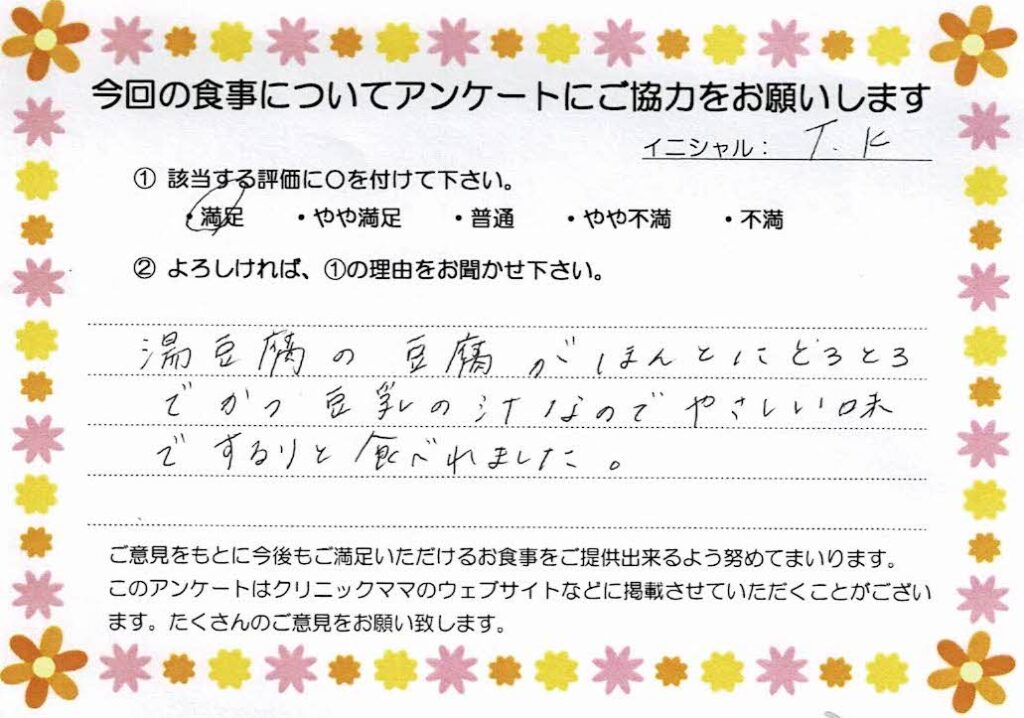 今回の食事についてアンケートにご協力をお願いします
イニシャル： T. K
① 該当する評価に〇を付けて下さい。
・満足 ・やや満足 ・普通 ・やや不満 ・不満
② よろしければ、①の理由をお聞かせ下さい。
湯豆腐の豆腐がほんとにとろとろ
でかつ豆乳の汁なのでやさしい味
でするりと食べれました。
ご意見をもとに今後もご満足いただけるお食事をご提供出来るよう努めてまいります。
このアンケートはクリニックママのウェブサイトなどに掲載させていただくことがござい
ます。たくさんのご意見をお願い致します。